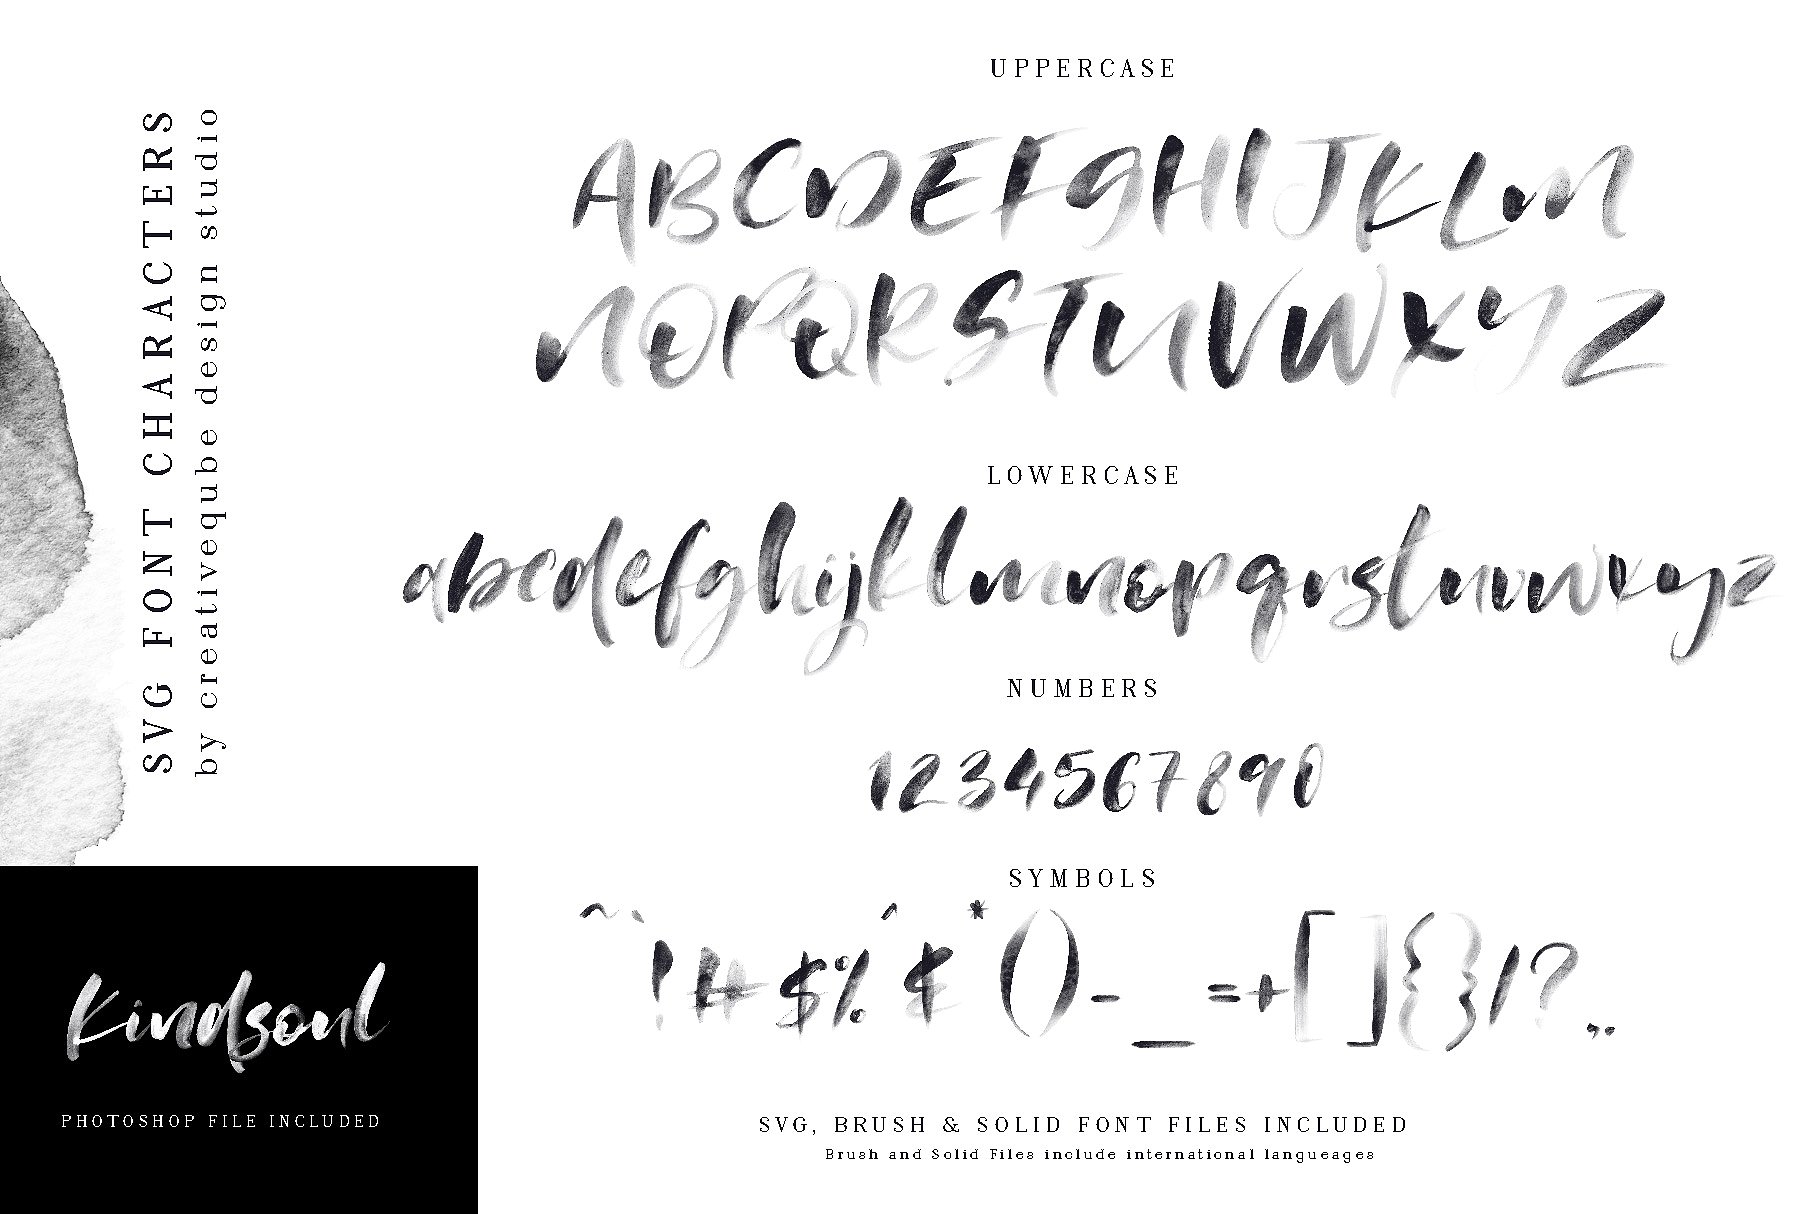 SVG FONT CHARACTERS
by creativeqube design studio
UPPERCASE
ABCDEFGHIJKLM
NOPQRSTUVWXYZ
LOWERCASE
abcdefghijklmnopqrstuvwxyz
NUMBERS
1234567890
SYMBOLS
~`!#$%^&*()-_=+[]{}/?,.
kindsoul
PHOTOSHOP FILE INCLUDED
SVG, BRUSH & SOLID FONT FILES INCLUDED
Brush and Solid Files include international langueages